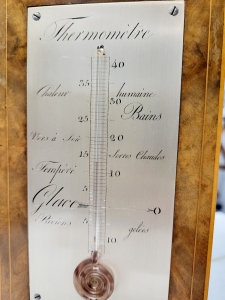 Thermomètre
40
35
Chaleur humaine
30
Bains
25
Vers à Soie 20
15 Serres Chaudes
Tempéré
5
Glace 0
Rivières 5 gelées
10